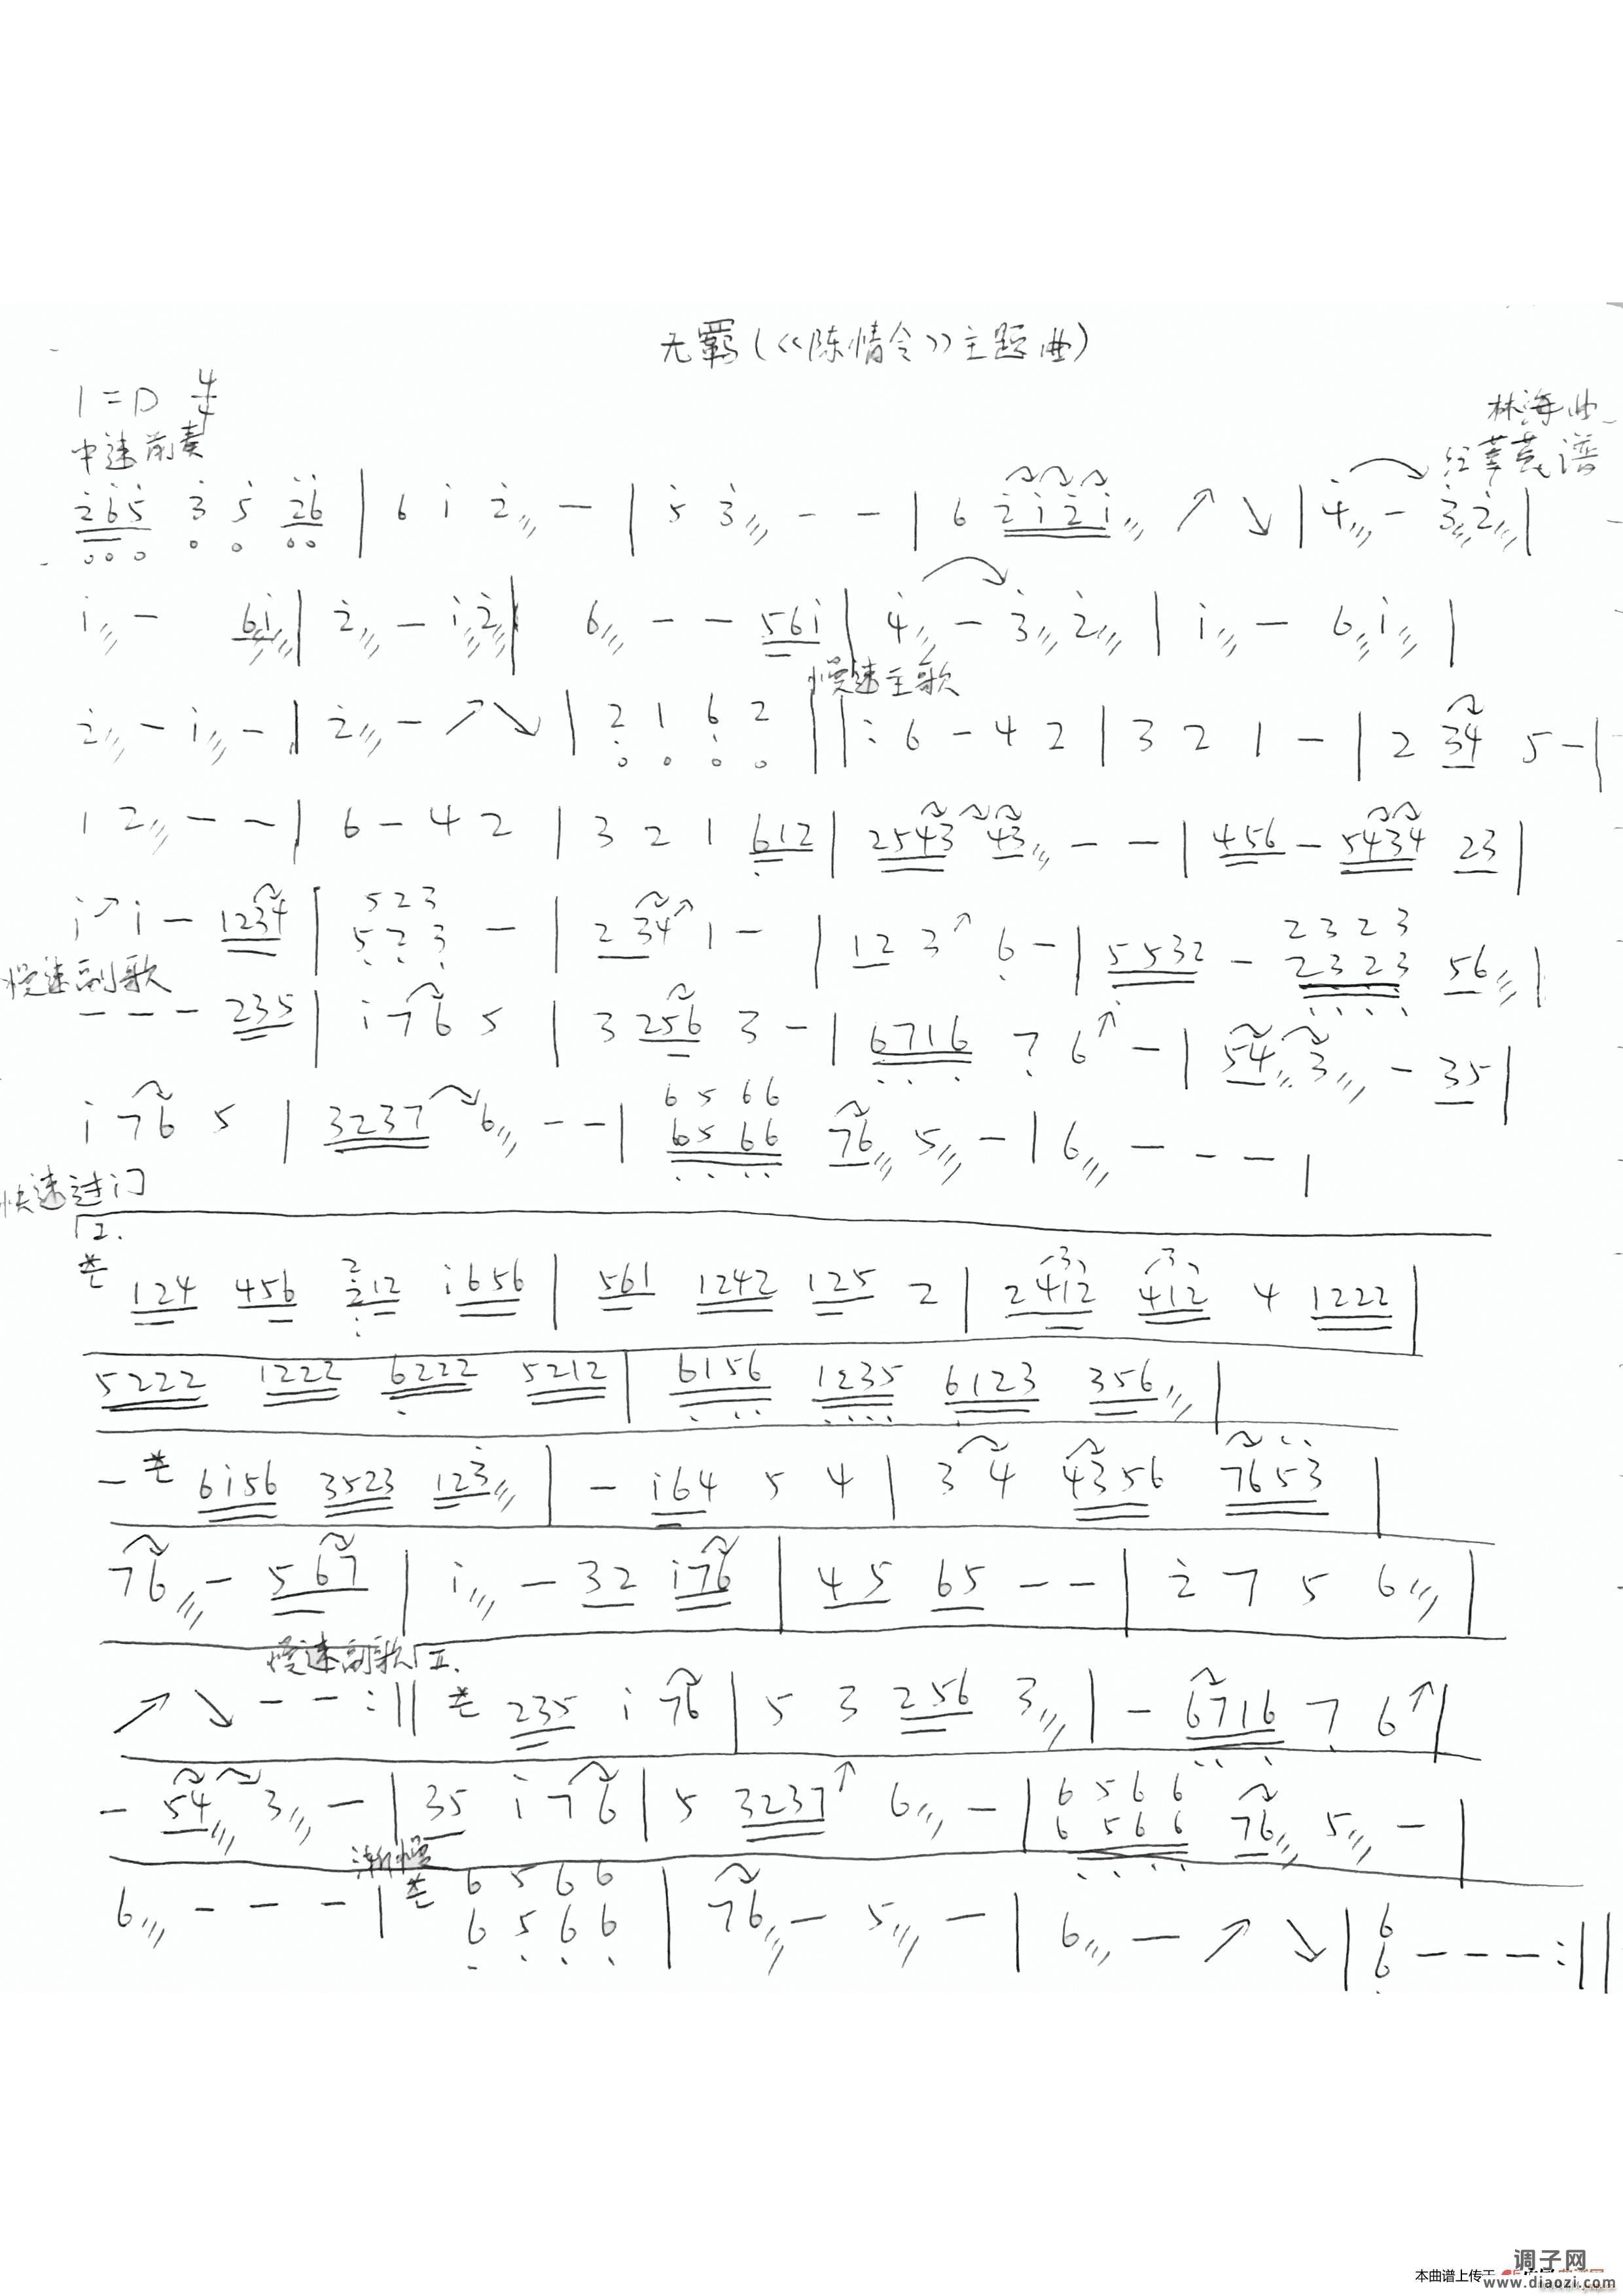 无羁(《陈情令》主题曲)
1=D 4/4
林海曲
中速前奏
莘萁谱
2̇6̇5̇ 3̇ 5̇ 2̇6̇ | 6 i 2̇ - | 5̇ 3̇ - - | 6 2̇i2̇i ↗ ↘ | 4̇ - 3̇2̇ |
i - 6i | 2̇ - i2̇ | 6 - - 56i | 4̇ - 3̇ 2̇ | i - 6 i |
慢速主歌
2̇ - i - | 2̇ - ↗ ↘ | 2 1 6̣ 2 ‖: 6 - 4 2 | 3 2 1 - | 2 34 5 - |
1 2 - - | 6 - 4 2 | 3 2 1 6̣12 | 2543 43 - - | 456 - 5434 23 |
i↗ i - 1234 | 523 5̣2̣3̣ - | 2 34↗ 1 - | 12 3↗ 6̣ - | 5532 - 2323 2̣3̣2̣3̣ 56 |
慢速副歌
- - - 235 | i 76 5 | 3 256 3 - | 6̣7̣16̣ 7̣ 6↗ - | 54 3 - 35 |
i 76 5 | 3237 6 - - | 6566 6̣5̣6̣6̣ 76 5 - | 6 - - - |
快速过门
2.
124 456 212 i656 | 561 1242 125 2 | 2412 412 4 1222 |
5222 1222 6̣222 5212 | 6̣15̣6̣ 1235 6̣123 356 |
- 6i56 3523 123̇ | - i64 5 4 | 3 4 4356 765̇3̇ |
76 - 567 | i - 32 i76 | 45 65 - - | 2̇ 7 5 6 |
慢速副歌II.
↗ ↘ - - :‖ 235 i 76 | 5 3 256 3 | - 6̣7̣16̣ 7̣ 6↗ |
- 54 3 - | 35 i 76 | 5 3237↗ 6 - | 6566 6̣5̣6̣6̣ 76 5 - |
渐慢
6 - - - | 6566 6̣5̣6̣6̣ | 76 - 5 - | 6 - ↗ ↘ | 6 6̣ - - - :‖
调子网
本曲谱上传于
www.diaozi.com